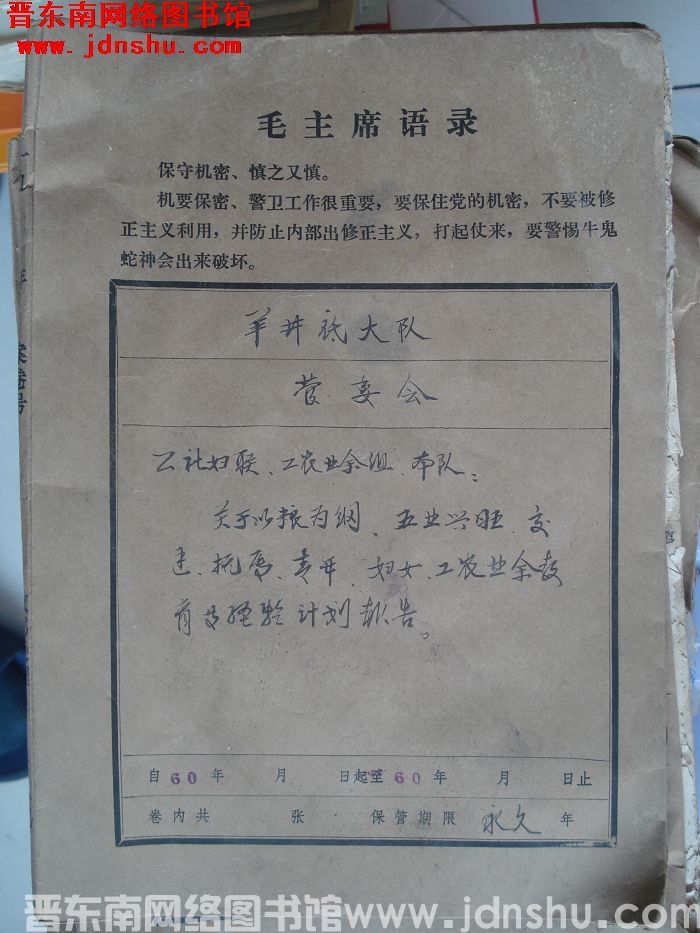 晋东南网络图书馆
www.jdnshu.com
毛主席语录
保守机密、慎之又慎。
机要保密、警卫工作很重要，要保住党的机密，不要被修
正主义利用，并防止内部出修正主义，打起仗来，要警惕牛鬼
蛇神会出来破坏。
羊井底大队
管委会
公社妇联、工农业余组、本队：
关于以粮为纲、五业兴旺、交
通、抗旱、青年、妇女、工农业余教
育 经验计划报告。
自60年 月 日起至60年 月 日止
卷内共 张 保管期限 永久 年
案卷号
晋东南网络图书馆 www.jdnshu.com